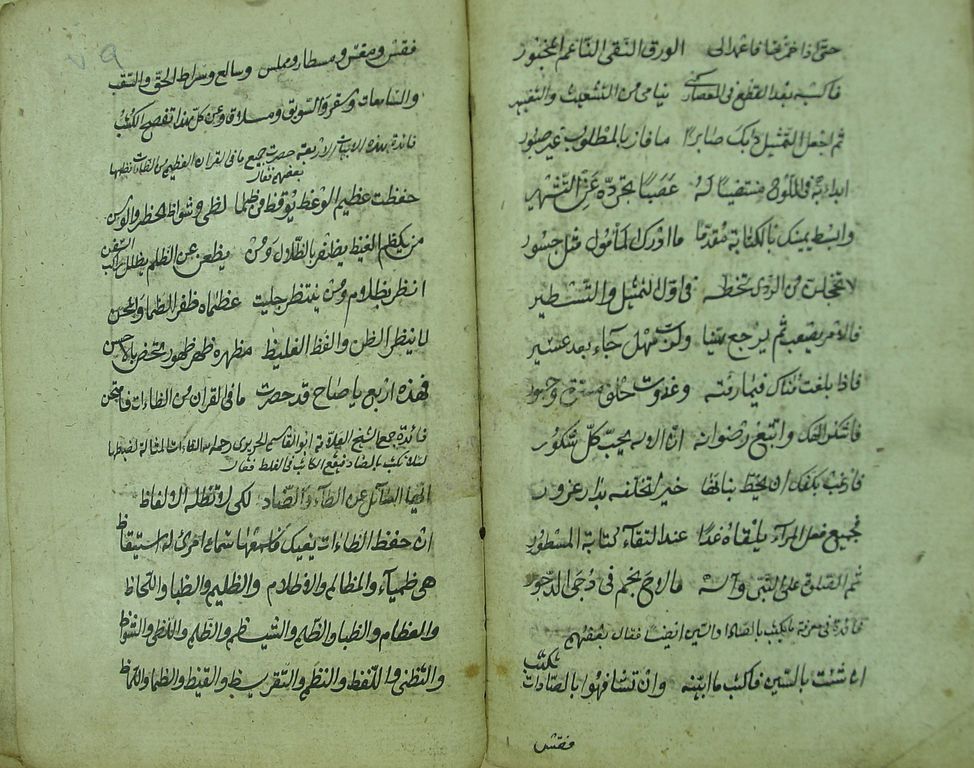 حتى اذا خمرتها فاعمد الى الورق النقى الناعم المخبور
فاكبسه بعد القطع فى المعصار كى ينأى من التشعيث والتغيير
ثم اجعل التمثيل دابك صابرا ما فاز بالمطلوب غير صبور
ابدأ به فى اللوح منتضيا له عضبا تجرده عن التشهير
وابسط يمينك بالكتابة مقدما ما ادرك المأمول مثل جسور
لا تخجلن من الردى تخطه فى اول التمثيل والتسطير
فالامر يصعب ثم يرجع هينا ولرب سهل جاء بعد عسير
فاذا بلغت مناك فيما رمته وغدوت حلف مسرة وحبور
فاشكر الهك واتبع رضوانه ان الاله يحب كل شكور
فارغب بكفك ان تخط بنانها خيرا تخلفه بدار غرور
فجميع فعل المرء يلقاه غدا عند التقاء كتابه المسطور
ثم الصلوة على النبى وآله ما لاح نجم فى دجى الديجور
فائدة فى معرفة ما يكتب بالصاد والسين ايضا فقال بعضهم
ان شئت بالسين فاكتب ما ابينه وان تشا فهوا بالصادات تكتب
فقش
فقس ومقس ومسطار ومملس وسالغ وسراط الحق والسقب
والسامغات وسقر والسويق ومسلاق وعن كل هذا تفصح الكتب
فائدة هذه الابيات الاربعة حصرت جميع ما فى القران العظيم من الظاات نظمها
بعضهم فقال
حفظت عظيم الوعظ يوقظ من ظما لظى وشواظ الحظر والوسن
من يكظم الغيظ يظفر بالظلال ومن يظعن عن الظلم يظلل راكب السفن
انظر بظلام ومن ينتظر عظماه ظفر الظما
لا ينظر الظن والفظ الغليظ مظهره ظهر ظهور
فهذه اربع يا صاح قد حصرت ما فى القران من الظاءات فامتحن
فائدة جمع الشيخ العلامة ابو القاسم الحريرى رحمه الله الظاءات
لئلا تكتب بالضاد فيقع الكاتب فى الغلط فقال
ايها السائل عن الظآء والضاد لكى لا تضله الالفاظ
ان حفظ الظاءات يغنيك فاسمعها سماع امرئ له استيقاظ
هى ظمياء والمظالم والاظلام والظليم والظبا واللحاظ
والعظام والظبا والظلم والشيظم والظل واللظى والشواظ
والتظنى واللفظ والنظم والتقريظ والقيظ والظما واللماظ